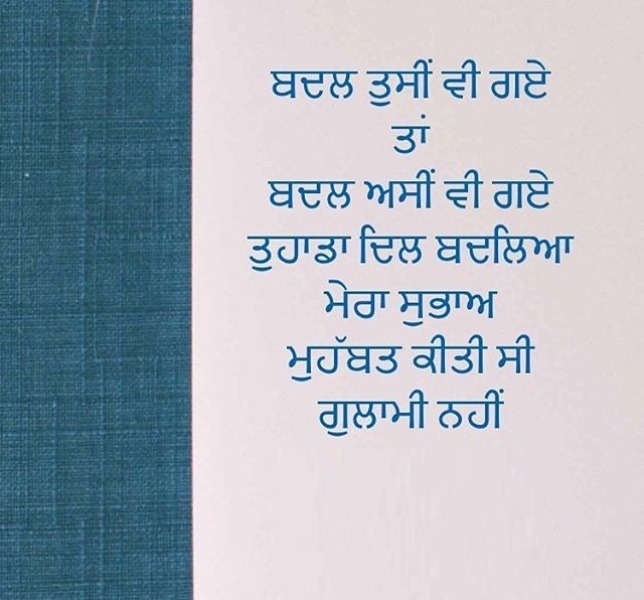 ਬਦਲ ਤੁਸੀਂ ਵੀ ਗਏ
ਤਾਂ
ਬਦਲ ਅਸੀਂ ਵੀ ਗਏ
ਤੁਹਾਡਾ ਦਿਲ ਬਦਲਿਆ
ਮੇਰਾ ਸੁਭਾਅ
ਮੁਹੱਬਤ ਕੀਤੀ ਸੀ
ਗੁਲਾਮੀ ਨਹੀਂ